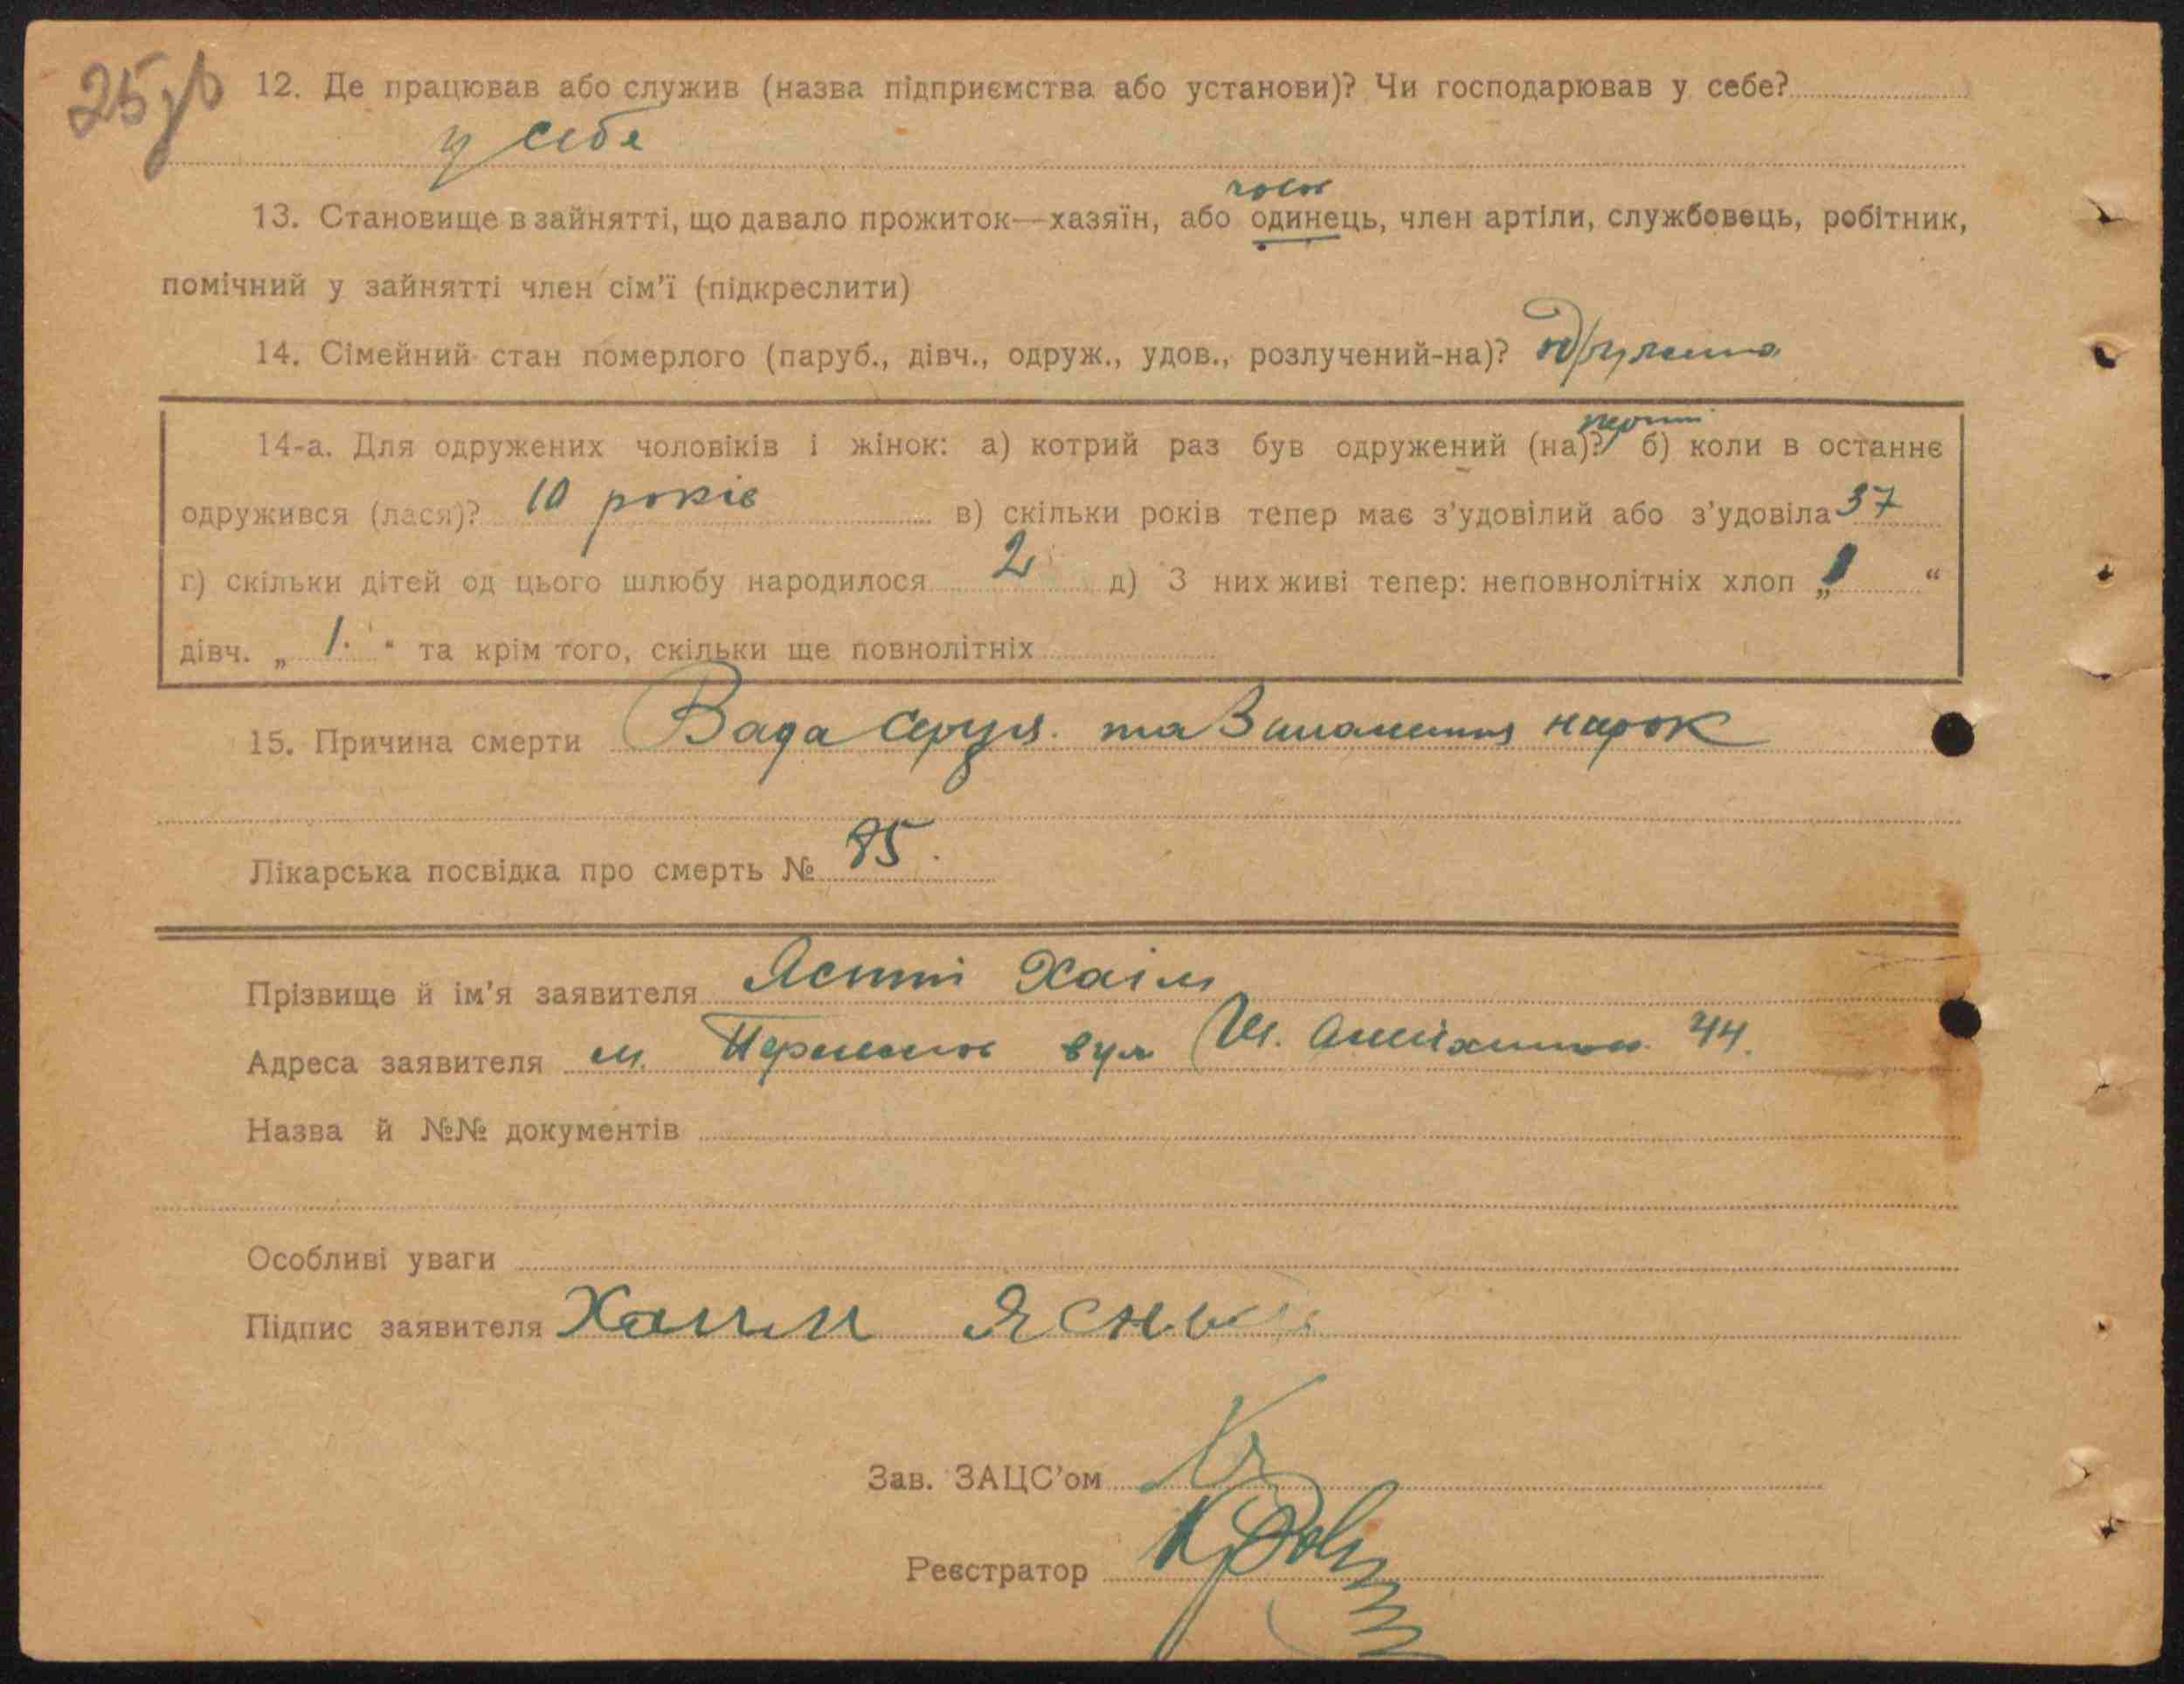 25зв
12. Де працював або служив (назва підприємства або установи)? Чи господарював у себе?
у себе
13. Становище в зайнятті, що давало прожиток—хазяїн, або одинець, член артіли, службовець, робітник,
помічний у зайнятті член сім'ї (підкреслити)
14. Сімейний стан померлого (паруб., дівч., одруж., удов., розлучений-на)? одружена
14-а. Для одружених чоловіків і жінок: а) котрий раз був одружений (на)? перший б) коли в останнє
одружився (лася)? 10 років в) скільки років тепер має з'удовілий або з'удовіла 37
г) скільки дітей од цього шлюбу народилося 2 д) З них живі тепер: неповнолітніх хлоп „ 1 “
дівч. „ 1. “ та крім того, скільки ще повнолітніх
15. Причина смерти Вада серця та Запалення нирок
Лікарська посвідка про смерть № 85.
Прізвище й ім'я заявителя Ясний Хаім
Адреса заявителя м. вул Ш. 44.
Назва й №№ документів
Особливі уваги
Підпис заявителя Хаим Ясный
Зав. ЗАЦС'ом
Реєстратор